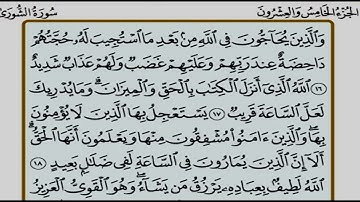 الجزء الخامس والعشرون سورة الشورى
وَالَّذِينَ يُحَاجُّونَ فِي اللَّهِ مِنْ بَعْدِ مَا اسْتُجِيبَ لَهُ حُجَّتُهُمْ
دَاحِضَةٌ عِنْدَ رَبِّهِمْ وَعَلَيْهِمْ غَضَبٌ وَلَهُمْ عَذَابٌ شَدِيدٌ
١٦ اللَّهُ الَّذِي أَنْزَلَ الْكِتَٰبَ بِالْحَقِّ وَالْمِيزَانَ وَمَا يُدْرِيكَ
لَعَلَّ السَّاعَةَ قَرِيبٌ ١٧ يَسْتَعْجِلُ بِهَا الَّذِينَ لَا يُؤْمِنُونَ
بِهَا وَالَّذِينَ ءَامَنُوا مُشْفِقُونَ مِنْهَا وَيَعْلَمُونَ أَنَّهَا الْحَقُّ
أَلَا إِنَّ الَّذِينَ يُمَارُونَ فِي السَّاعَةِ لَفِي ضَلَٰلٍ بَعِيدٍ ١٨
اللَّهُ لَطِيفٌ بِعِبَادِهِ يَرْزُقُ مَنْ يَشَاءُ وَهُوَ الْقَوِيُّ الْعَزِيزُ